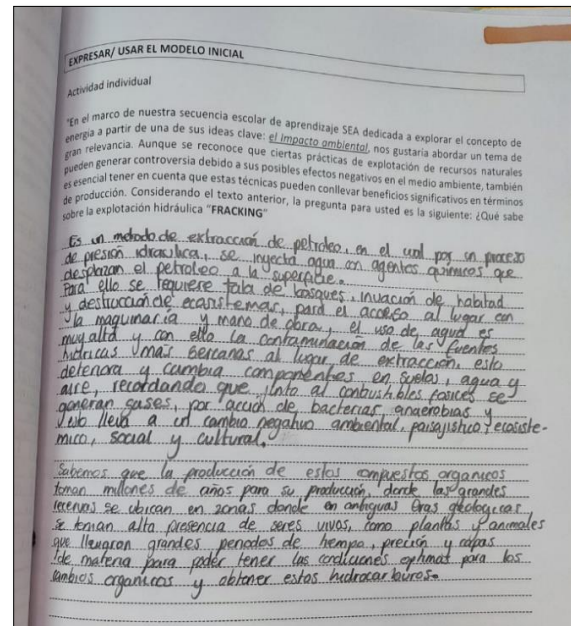 EXPRESAR/ USAR EL MODELO INICIAL
Actividad individual
"En el marco de nuestra secuencia escolar de aprendizaje SEA dedicada a explorar el concepto de
energía a partir de una de sus ideas clave: el impacto ambiental, nos gustaría abordar un tema de
gran relevancia. Aunque se reconoce que ciertas prácticas de explotación de recursos naturales
pueden generar controversia debido a sus posibles efectos negativos en el medio ambiente, también
es esencial tener en cuenta que estas técnicas pueden conllevar beneficios significativos en términos
de producción. Considerando el texto anterior, la pregunta para usted es la siguiente: ¿Qué sabe
sobre la explotación hidráulica "FRACKING"
Es un metodo de extracción de petroleo, en el cual por un proceso
de presión idraulica, se inyecta agua con agentes quimicos que
desplazan el petroleo a la superficie.
Para ello se requiere tala de bosques, invación de habitad
y destrucción de ecosistemas, para el acceso al lugar con
la maquinaria y mano de obra, el uso de agua es
muy alta y con ello la contaminación de las fuentes
hidricas mas sercanas al lugar de extracción, esto
deteriora y cambia componentes en suelos, agua y
aire, recordando que junto al combustibles fosiles se
generan gases, por acción de bacterias anaerobias y
esto lleva a un cambio negativo ambiental, paisajistico, ecosiste-
mico, social y cultural.
Sabemos que la producción de estos compuestos organicos
toman millones de años para su producción, donde las grandes
reservas se ubican en zonas donde en antiguas Eras geologicas
se tenian alta presencia de seres vivos, como plantas y animales
que llevaron grandes periodos de tiempo, y capas
de materia para poder tener las condiciones optimas para los
cambios organicos y obtener estos hidrocarburos.